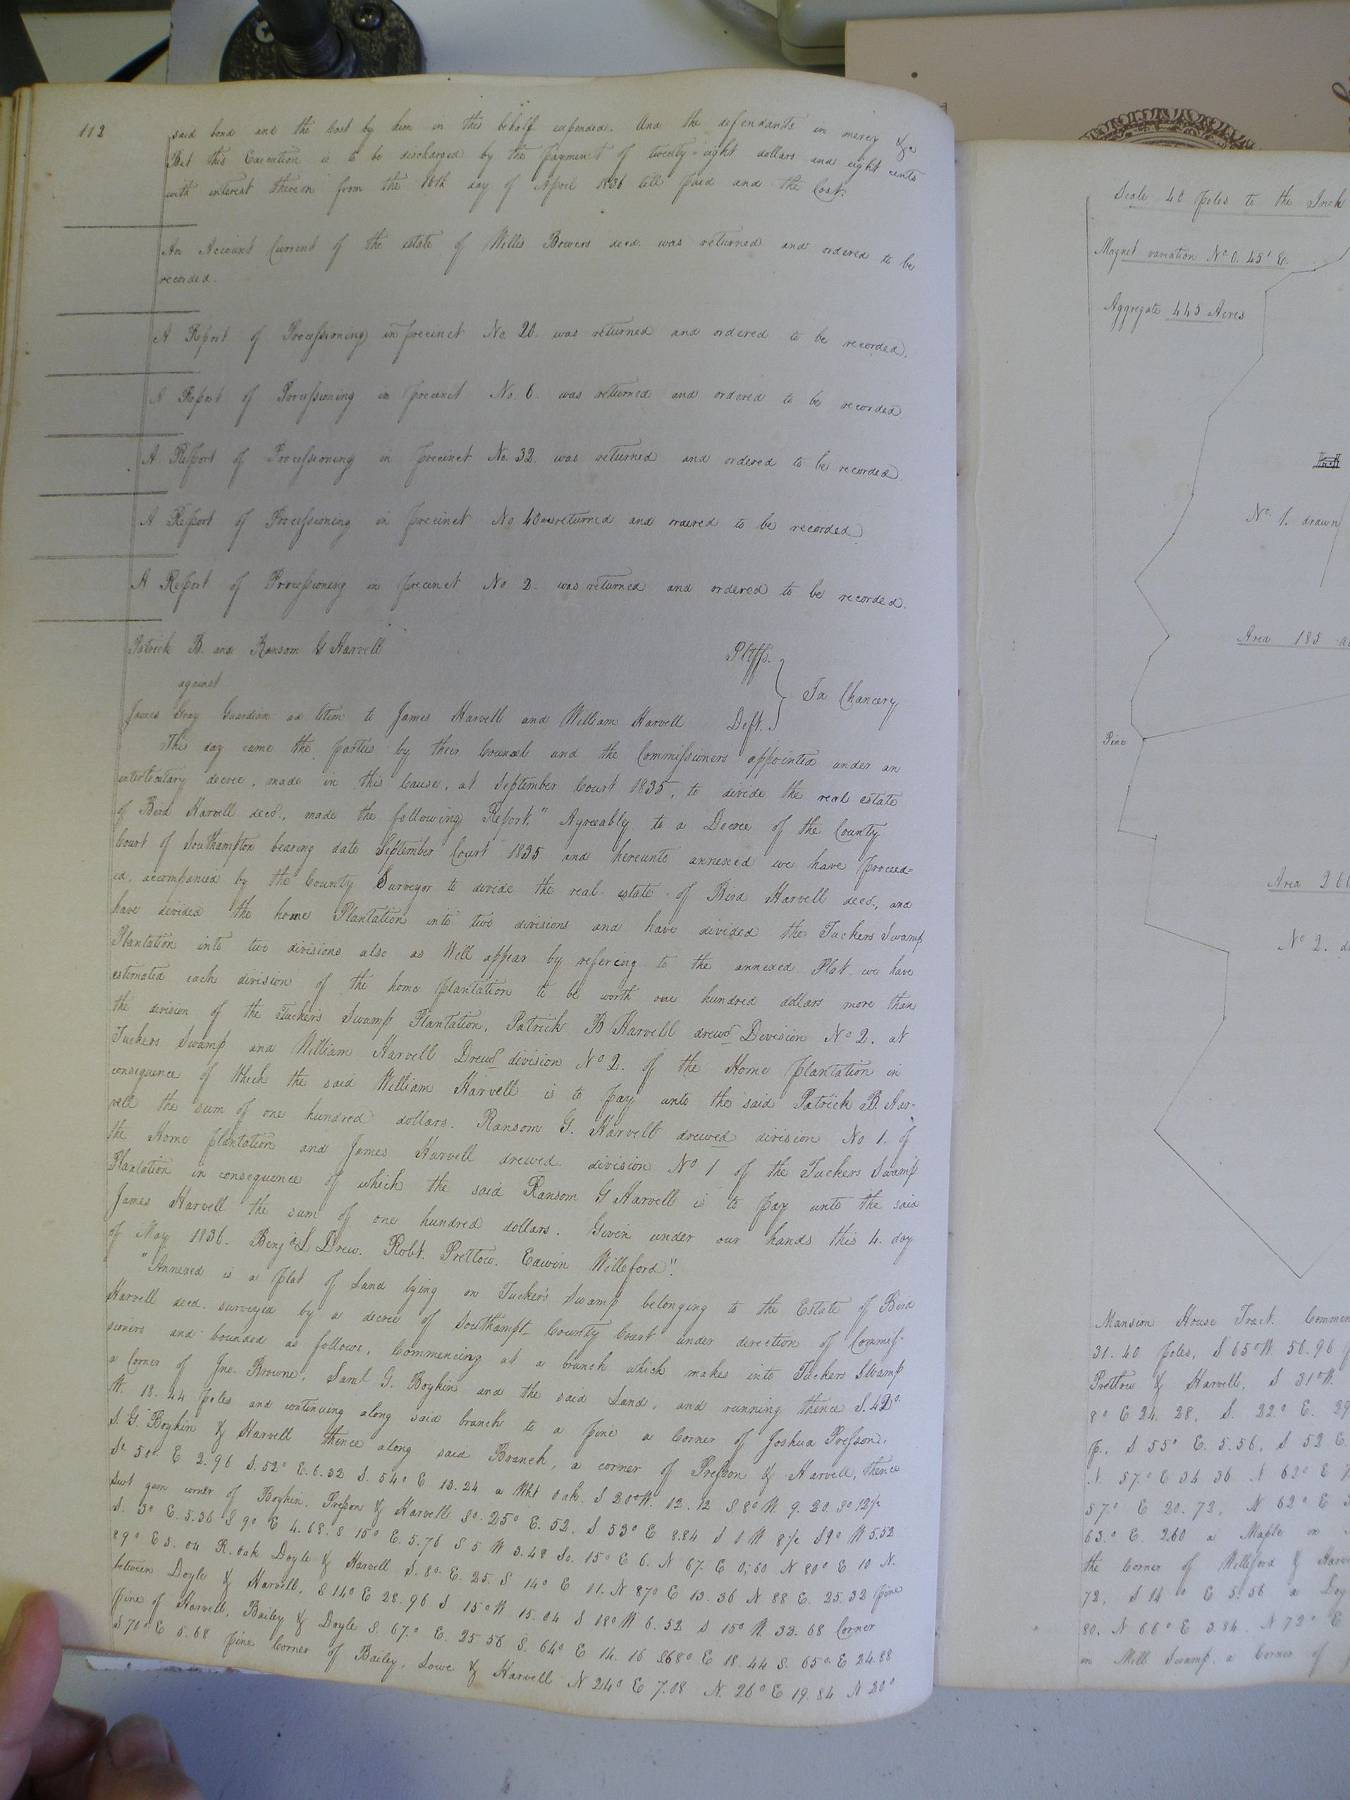 112
said bond and the Cost by him in this behalf expended. And the defendants in mercy &c
But this Execution is to be discharged by the payment of twenty-eight dollars and eight cents
with interest thereon from the 16th day of April 1836 till paid and the Cost.
An Account Current of the estate of Willis Bowers decd. was returned and ordered to be
recorded.
A Report of Processioning in precinct No. 20. was returned and ordered to be recorded.
A Report of Processioning in precinct No. 6. was returned and ordered to be recorded
A Report of Processioning in precinct No. 32. was returned and ordered to be recorded
A Report of Processioning in precinct No 40 was returned and ordered to be recorded
A Report of Processioning in precinct No 2. was returned and ordered to be recorded.
Patrick B. and Ransom G Harvell Pltffs.
against In Chancery
James Gray Guardian ad litem to James Harvell and William Harvell Deft.
This day came the parties by their Counsel and the Commissioners appointed under an
interlocutary decree, made in this Cause, at September Court 1835, to devide the real estate
of Bird Harvell decd., made the following Report, "Agreeably to a Decree of the County
Court of Southampton bearing date September Court 1835 and hereunto annexed we have proceed-
ed, accompanied by the County Surveyor to devide the real estate of Bird Harvell decd., and
have devided the home Plantation into two divisions and have divided the Tuckers Swamp
Plantation into two divisions also as Will appear by refering to the annexed Plat we have
estimated each division of the home plantation to be worth one hundred dollars more than
the division of the Tuckers Swamp Plantation, Patrick B Harvell drewd Division No 2. at
Tuckers Swamp and William Harvell Drewd division No 2. of the Home plantation in
consequence of Which the said William Harvell is to pay unto the said Patrick B. Har-
vell the sum of one hundred dollars. Ransom G. Harvell drewed division No 1. of
the Home plantation and James Harvell drewed division No 1 of the Tuckers Swamp
Plantation in consequence of which the said Ransom G Harvell is to pay unto the said
James Harvell the sum of one hundred dollars. Given under our hands this 4. day
of May 1836. Benja L Drew. Robt. Prettow. Edwin Williford".
"Annexed is a plat of Land lying on Tucker's Swamp belonging to the Estate of Bird
Harvell decd. surveyed by a decree of Southampt. County Court under direction of Commis-
sioners and bounded as follows, Commencing at a branch which makes into Tuckers Swamp
a Corner of Jno. Browne, Saml G. Boykin and the said Land, and running thence S. 42°.
W. 13. 44 poles and continuing along said branch to a pine a Corner of Joshua Presson,
S. G. Boykin & Harvell thence along said Branch, a corner of Presson & Harvell, thence
So 50° E 2.96 S. 52° E. 6.32 S. 54° E 13.24 a Wht Oak. S 20° W. 12. 12 S. 8° W. 9. 20
Sweet gum corner of Boykin, Presson & Harvell So. 25° E. 52. S 53° E 8.84
S. 3° E. 5.36 S 9° E 4.68. S 15° E. 5.76 S 5 W 3.48 So. 15° E 6. N 67. E 0; 60 N 80° E 10 N.
89° E 5. 04 R. oak Doyle & Harvell S. 8° E. 25. S 14° E 11. N 87° E 13. 36 N 88 E. 25. 32 pine
between Doyle & Harvell, S 14° E 28. 96 S 15° W 15. 04 S 18° W 6. 52 S 15° W. 33. 68 Corner
pine of Harvell, Bailey & Doyle S. 67.° E. 25 56 S. 64° E 14. 16 S68° E 18. 44 S. 65° E 24.88
S 70° E 5. 68 pine Corner of Bailey, Lowe & Harvell N 24° E 7.08 N. 26° E 19. 84 N 20°
Scale 40 poles to the Inch
Magnet variation No. 0. 45' E.
Aggregate 445 Acres
No. 1. drawn
Area 185
Pine
Area 260
No 2. d
Mansion House Tract. Commen
31. 40 poles, S 65° W. 56. 96
Prettow & Harvell, S 31° W.
8° E 24. 28, S. 22° E. 29
p. S 55° E. 5.56, S 52 E.
N. 57° E 34 36 N 62° E
57° E 20. 72, N 62° E
63° E. 2.60 a Maple on
the Corner of Williford & Harv
72, S 14° E 5.56 a Dog
80. N 66° E 3.84. N 72° E
in Mill Swamp, a Corner of